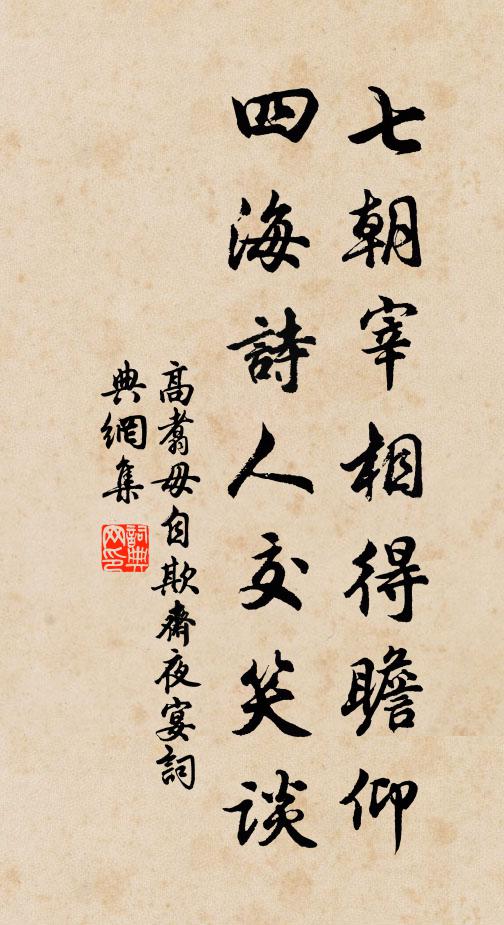 七朝宰相得瞻仰
四海詩人交笑談
高翥毋自欺齋夜宴詞
典網集
詞典
网印